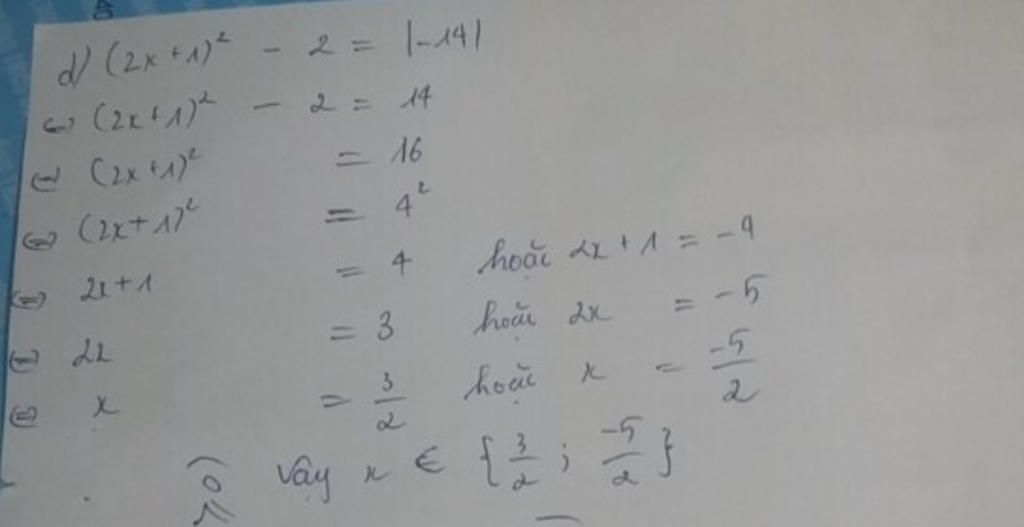 d) (2x+1)² - 2 = |-14|
⇔ (2x+1)² - 2 = 14
⇔ (2x+1)² = 16
⇔ (2x+1)² = 4²
⇔ 2x+1 = 4 hoặc 2x+1 = -4
⇔ 2x = 3 hoặc 2x = -5
⇔ x = 3/2 hoặc x = -5/2
Vậy x ∈ {3/2 ; -5/2}